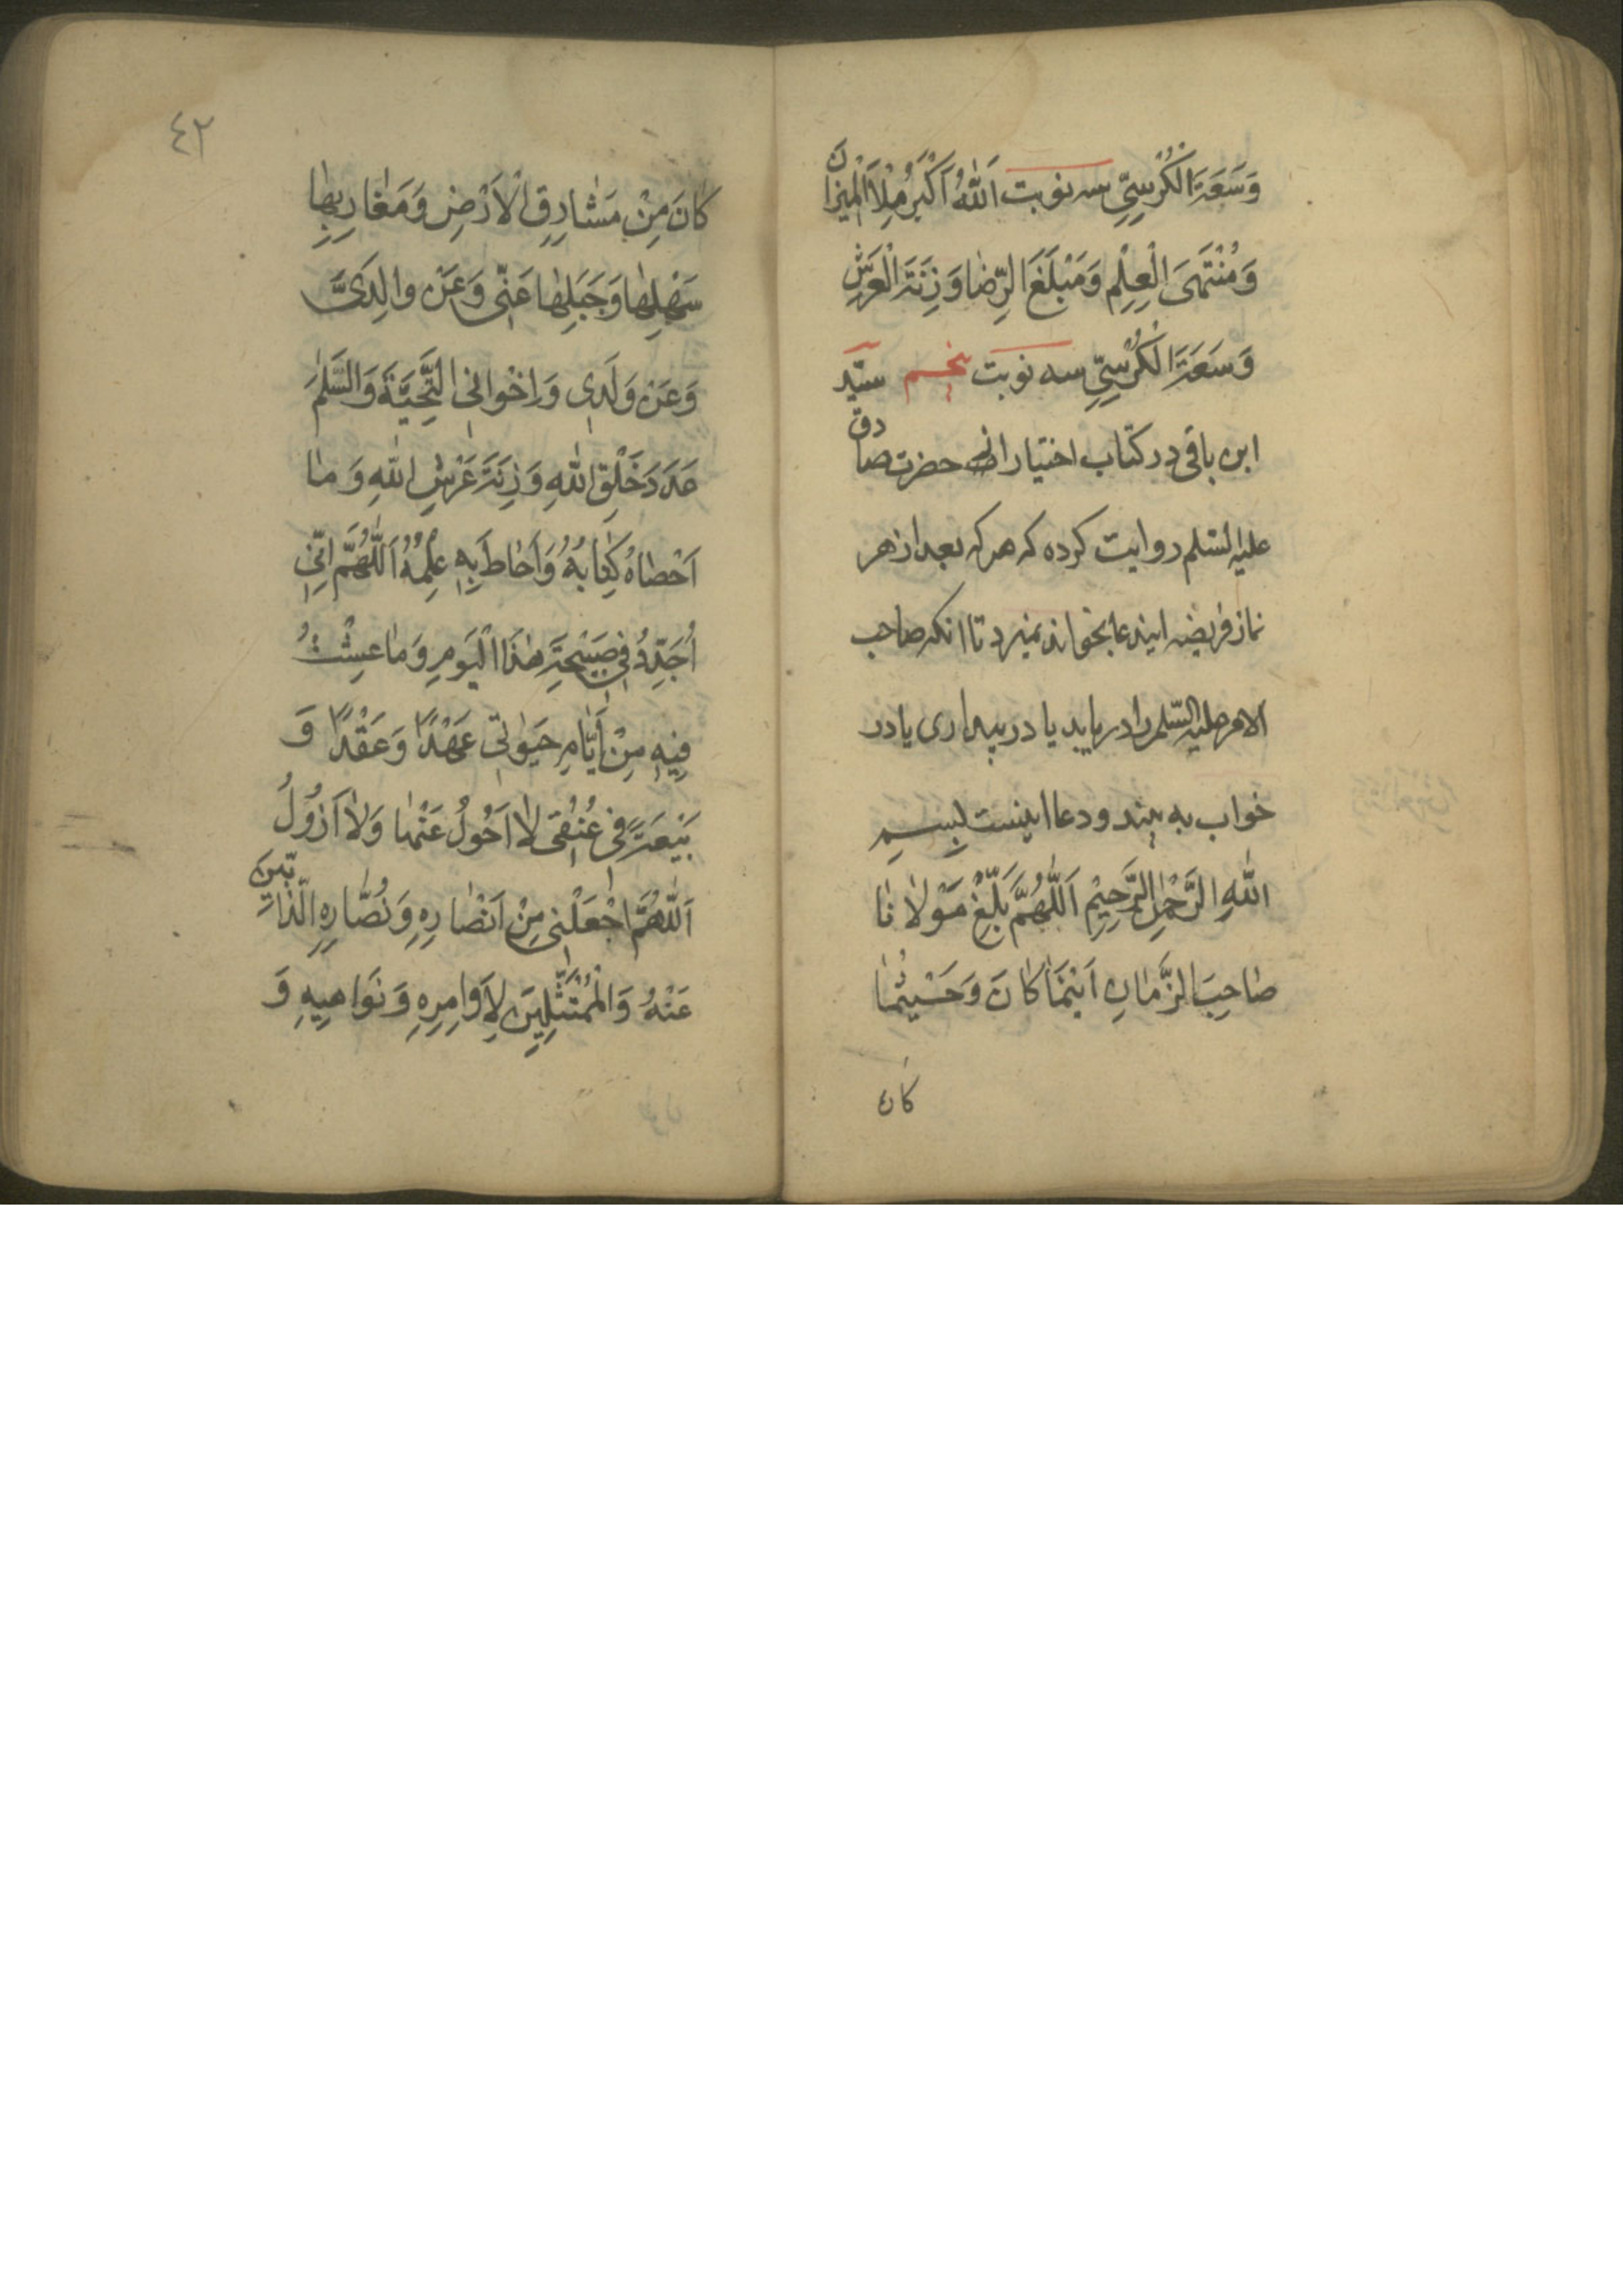 وَسَعَةَ الْكُرْسِيِّ سه نوبت اَللّٰهُ اَكْبَرُ مِلْاَ الْمِيزانَ
وَمُنْتَهَى الْعِلْمِ وَمَبْلَغَ الرِّضٰا وَزِنَةَ الْعَرْشِ
وَسَعَةَ الْكُرْسِيِّ سه نوبت پنجم سیّد
ابن باقی در کتاب اختیار از حضرت صادق
علیه السّلم روایت کرده که هر که بعد از هر
نماز فریضه ایندعا بخواند نمیرد تا انکه صاحب
الامر علیه السّلم را در یابد یا در بیداری یا در
خواب به بیند و دعا اینست بِسْمِ
اللّٰهِ الرَّحْمٰنِ الرَّحِيْمِ اَللّٰهُمَّ بَلِّغْ مَوْلاٰنٰا
صٰاحِبَ الزَّمٰانِ اَيْنَمٰا كٰانَ وَحَيْثُمٰا
كان
٤٢
كٰانَ مِنْ مَشٰارِقِ الْاَرْضِ وَمَغٰارِبِهٰا
سَهْلِهٰا وَجَبَلِهٰا عَنّي وَعَنْ والِدَيَّ
وَعَنْ وَلَدِي وَاِخْوانِي التَّحِيَّةَ وَالسَّلٰمَ
عَدَدَ خَلْقِ اللّٰهِ وَزِنَةَ عَرْشِ اللّٰهِ وَمٰا
اَحْصٰاهُ كِتٰابُهُ وَاَحٰاطَ بِهِ عِلْمُهُ اَللّٰهُمَّ اِنّي
اُجَدِّدُ فِي صَبِيْحَةِ هٰذَا الْيَوْمِ وَمٰا عِشْتُ
فِيهِ مِنْ اَيّٰامِ حَيٰوتي عَهْدًا وَعَقْدًا وَ
بَيْعَةً في عُنُقي لاٰ اَحُولُ عَنْهٰا وَلاٰ اَزُولُ
اَللّٰهُمَّ اجْعَلْنِي مِنْ اَنْصٰارِهِ وَنُصّٰارِهِ الذّٰابّينَ
عَنْهُ وَالْمُمْتَثِلِينَ لِاَوامِرِهِ وَنَواهيهِ وَ